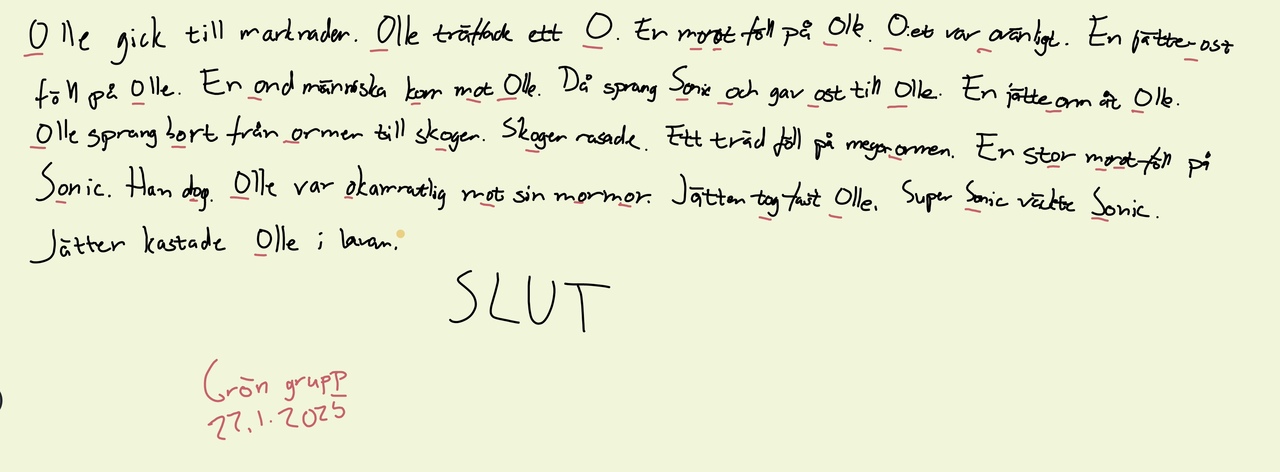 Olle gick till marknaden. Olle träffade ett O. En morot föll på Olle. O:et var ovänligt. En jätteost
föll på Olle. En ond människa kom mot Olle. Då sprang Sonic och gav ost till Olle. En jätteorm åt Olle.
Olle sprang bort från ormen till skogen. Skogen rasade. Ett träd föll på megaormen. En stor morot föll på
Sonic. Han dog. Olle var okamratlig mot sin mormor. Jätten tog fast Olle. Super Sonic väckte Sonic.
Jätten kastade Olle i lavan.
SLUT
Grön grupp
22.1.2025